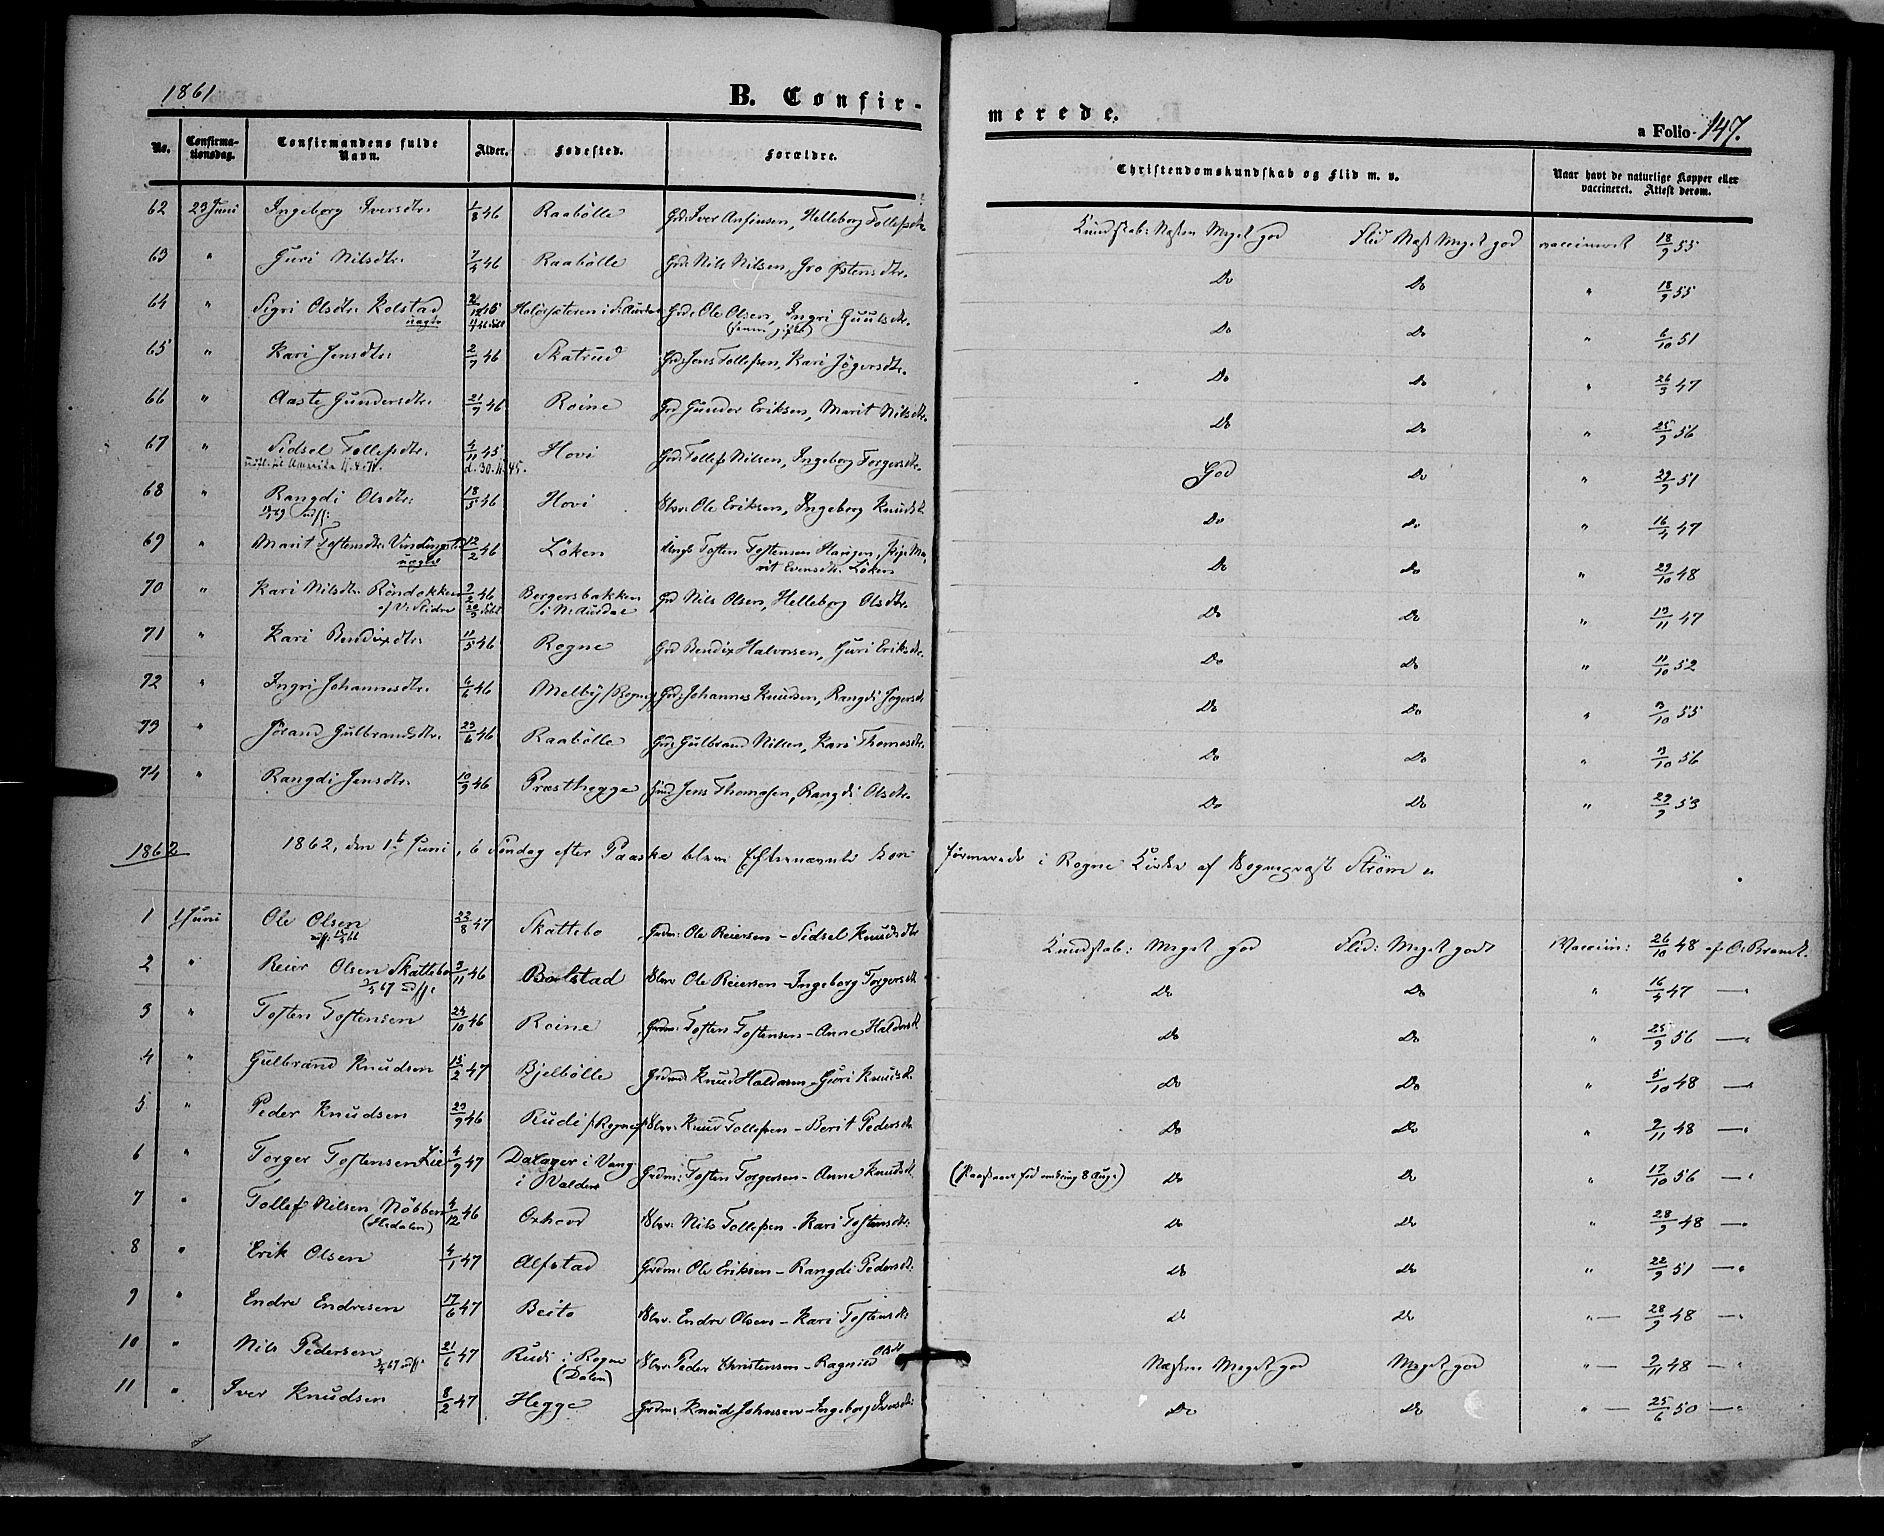 1861
B. Confir-
merede.
a Folio 147.
No. Confirmationsdag. Confirmandens fulde Navn. Alder. Fødested. Forældre. Christendomskundskab og Flid m. v. Naar havt de naturlige Kopper eller vaccineret. Attest derom.
62 23 Juni Ingeborg Iversdtr. 1/8 46 Raabølle Grd: Iver Anfinsen, Helleborg Tollefsdtr. Kundskab: Næsten Meget god Flid Næst Meget god vaccineret 18/9 55
63 " Guri Nilsdtr. 7/4 46 Raabølle Grd: Nils Nilsen, Gro Østensdtr. Do Do " 18/9 55
64 " Sigri Olsdtr. Kolstad 21/12 45 i S: Aurdal Grd: Ole Olsen, Ingri Guulsdtr. Do Do " 6/10 51
65 " Kari Jensdtr. 2/7 46 Skatrud Grd: Jens Tollefsen, Kari Jøgersdtr. Do Do " 26/9 47
66 " Aaste Gundersdtr. 21/9 46 Roine Grd Gunder Eriksen, Marit Nilsdtr. Do Do " 25/9 56
67 " Sidsel Tollefsdtr. 4/11 45 Hovi Grd: Tollef Nilsen, Ingeborg Torgersdtr. God Do " 29/9 51
udfl. til Amerika 11.4.71. d. 30.11.45.
68 " Rangdi Olsdtr. 18/5 46 Hovi Ole Eriksen, Ingeborg Knudsd. Do Do " 16/4 47
69 " Marit Tostensdtr. 12/2 46 Løken Tosten Tostensen Haugen, Marit Evensdtr. Løken Do Do " 29/10 48
70 " Kari Nilsdtr. Røndokken 9/2 46 Bergersbakken Grd Nils Olsen, Helleborg Olsdtr. Do Do " 19/11 47
af V: Slidre i N: Aurdal
71 " Kari Bendixdtr. 11/5 46 Rogne Grd Bendix Halvorsen, Guri Eriksdtr. Do Do " 11/10 52
72 " Ingri Johannesdtr. 6/6 46 Melby /Rogne/ Grd: Johannes Knudsen, Rangdi Jøgersd. Do Do " 3/10 55
73 " Jørand Gulbrandsdtr. 23/6 46 Raabølle Grd: Gulbrand Nilsen, Kari Thomesdtr. Do Do " 3/10 56
74 " Rangdi Jensdtr. 10/9 46 Præsthegge Jens Thomesen, Rangdi Olsdtr. Do Do " 29/9 53
1862 1862, den 1te Juni, 6 Søndag efter Paaske bleve Efternævnte Con-
firmerede i Rogne Kirke af Sogneprest Strøm
1 1 Juni Ole Olsen 22/8 47 Skattebo Grdm: Ole Reiersen - Sidsel Knudsdtr Kundskab: Meget god Flid: Meget godt Vaccin: 26/10 48 af O. Brandt.
2 " Reier Olsen Skattebo 3/11 46 Bolstad Ole Reiersen - Ingeborg Torgersd. Do Do " 16/4 47 — "
3 " Tosten Tostensen 24/10 46 Roine Grdm: Tosten Tostensen - Anne Haldorsd. Do Do " 25/9 56 — "
4 " Gulbrand Knudsen 15/2 47 Bjelbølle Grdmd: Knud Haldorsen - Guri Knudsd. Do Do " 5/10 48 — "
5 " Peder Knudsen 29/9 46 Rudi /Rogne/ Knud Tollefsen - Berit Pedersd. Do Do " 2/11 48 — "
6 " Torger Tostensen Lie 4/9 47 Dalager i Vang i Valders Grdm: Tosten Torgersen - Anne Knudsd. Do Do " 17/10 56 — "
7 " Tollef Nilsen Nøbben 4/12 46 Oxhovd Nils Tollefsen - Kari Tostensdtr: Do Do " 28/9 48 — "
(Hedalen)
8 " Erik Olsen 4/1 47 Alfstad Grdm: Ole Eriksen - Rangdi Pedersd. Do Do " 22/9 51 — "
9 " Endre Endresen 17/6 47 Beito Endre Olsen - Kari Tostensd: Do Do " — 28/9 48 — "
10 " Nils Pedersen 21/6 47 Rudi i Rogne Peder Christensen - Ragnild Olsd. Næsten Meget god Meget god " — 2/11 48 — "
(Dalen)
11 " Iver Knudsen 8/2 47 Hegge Grdm: Knud Johnsen - Ingeborg Iversdtr: Do Do " — 25/6 50 — "